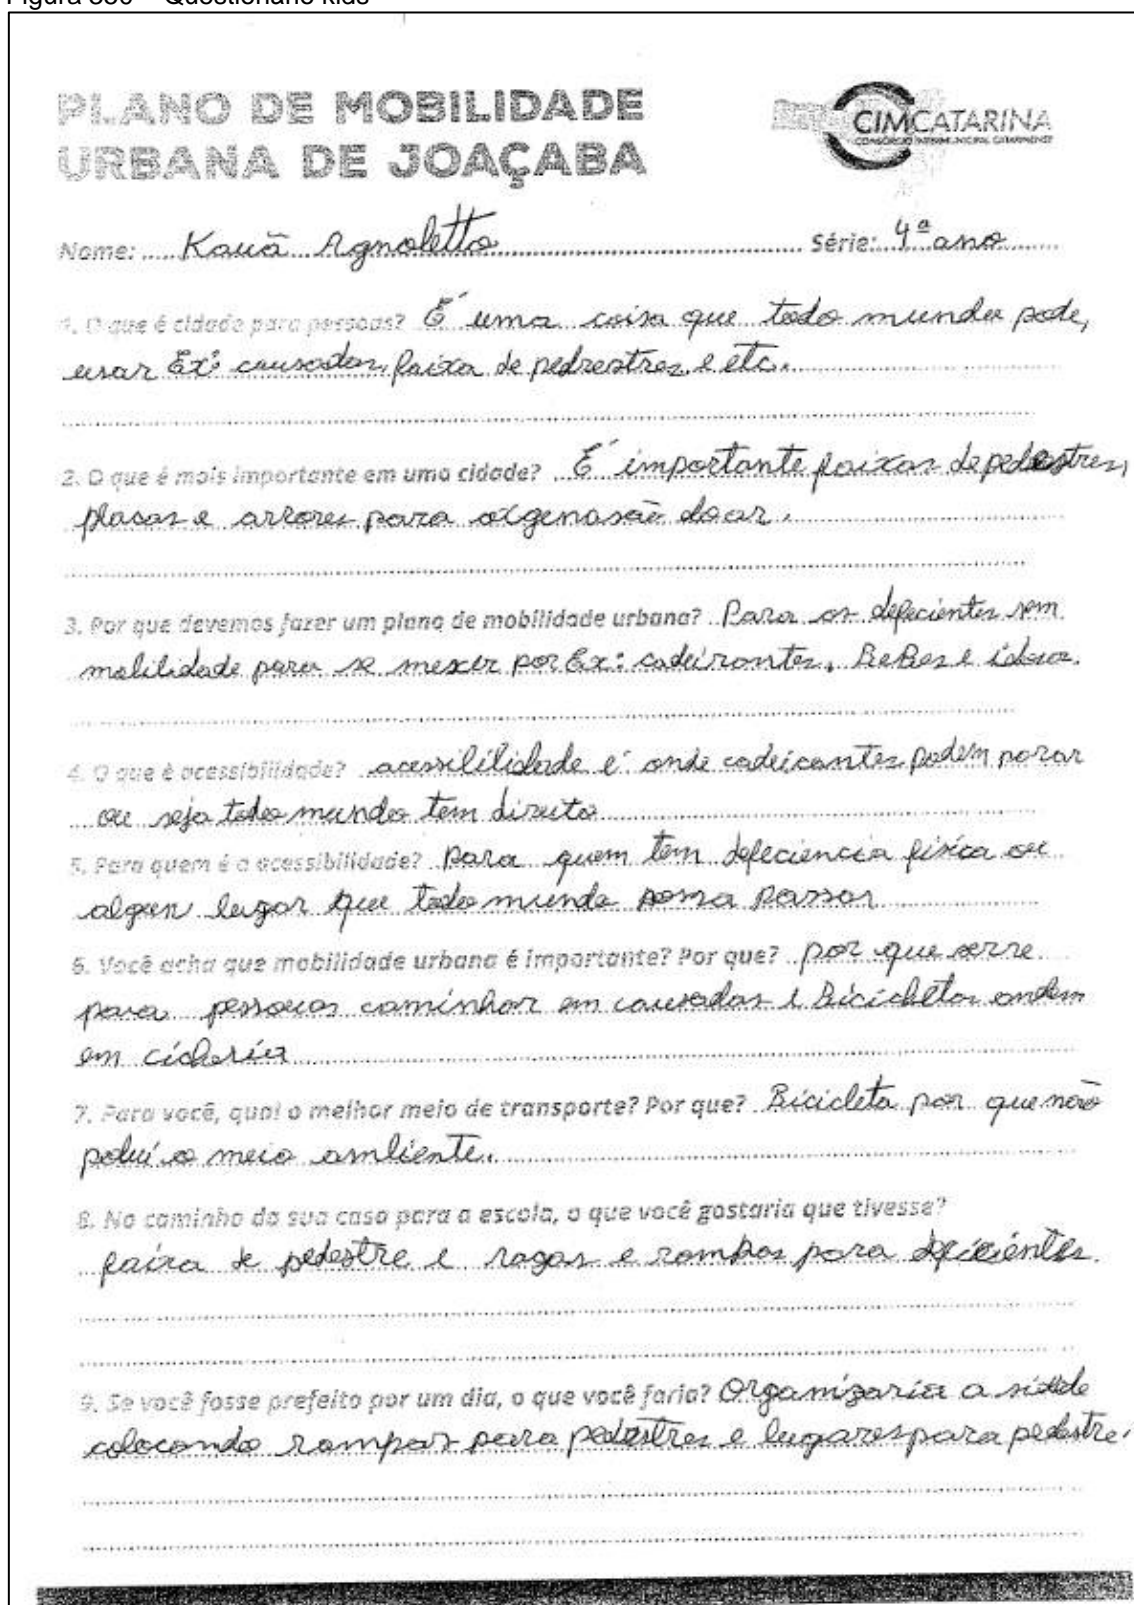 PLANO DE MOBILIDADE
URBANA DE JOAÇABA
CIMCATARINA
CONSÓRCIO INTERMUNICIPAL CATARINENSE
Nome: Kauã Agnoletto Série: 4ª ano
1. O que é cidade para pessoas? É uma coisa que todo mundo pode,
usar Ex: causadas, faixa de pedrestres, e etc.
2. O que é mais importante em uma cidade? É importante faixas de pedestres,
placas e arvores para oxgenasão do ar.
3. Por que devemos fazer um plano de mobilidade urbana? Para os defecientes sem
mobilidade para se mexer por Ex: cadeirantes, BeBes e
4. O que é acessibilidade? acessibilidade é onde cadeirantes podem parar
ou seja todo mundo tem direito
5. Para quem é a acessibilidade? para quem tem defeciencia física ou
algum lugar que todo mundo possa passar
6. Você acha que mobilidade urbana é importante? Por que? por que serve
para pessoas caminhar em causadas e Bicicletas andem
em ciclovia
7. Para você, qual o melhor meio de transporte? Por que? Bicicleta por que não
poluí o meio ambiente.
8. No caminho da sua casa para a escola, o que você gostaria que tivesse?
faixa de pedestre e vagas e rampas para
9. Se você fosse prefeito por um dia, o que você faria? Organizaria a
colocando rampas para pedestres e lugares para pedestre.